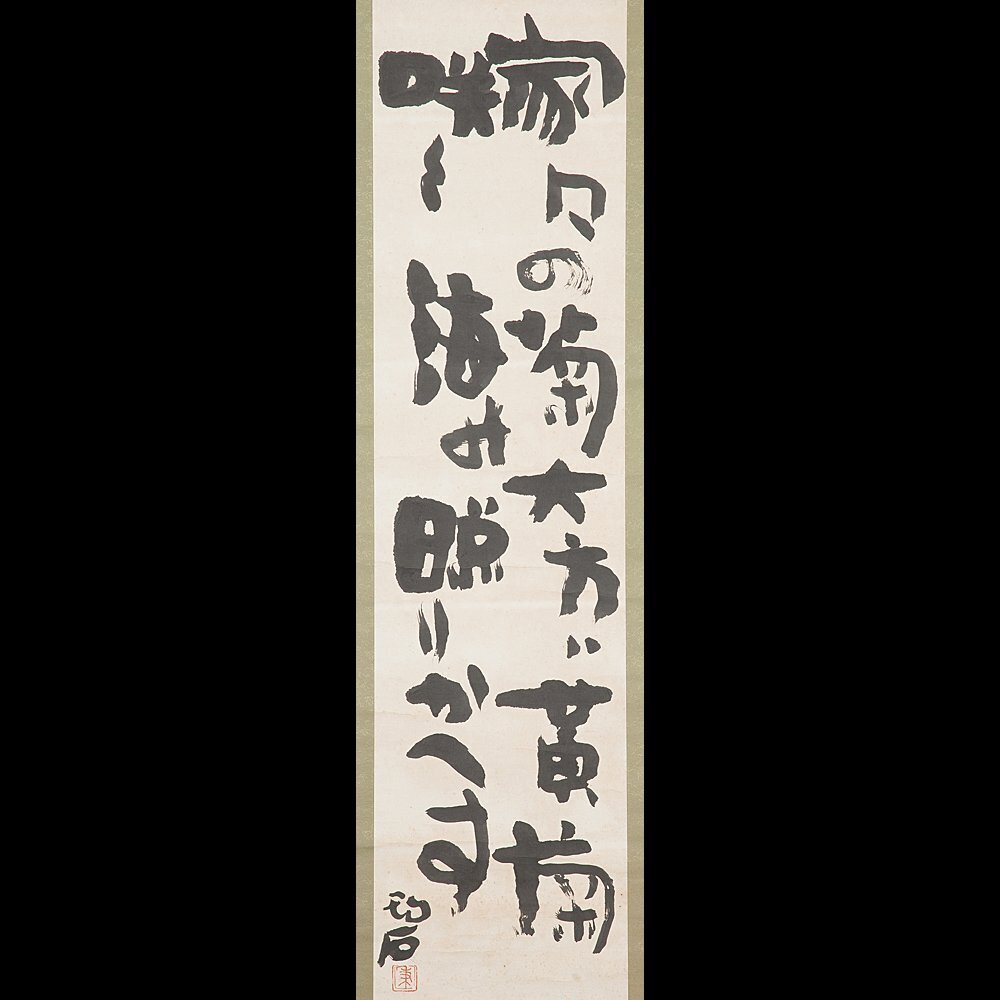 家々の菊大方ハ黄菊
咲く海の照りかへす
碧
秉